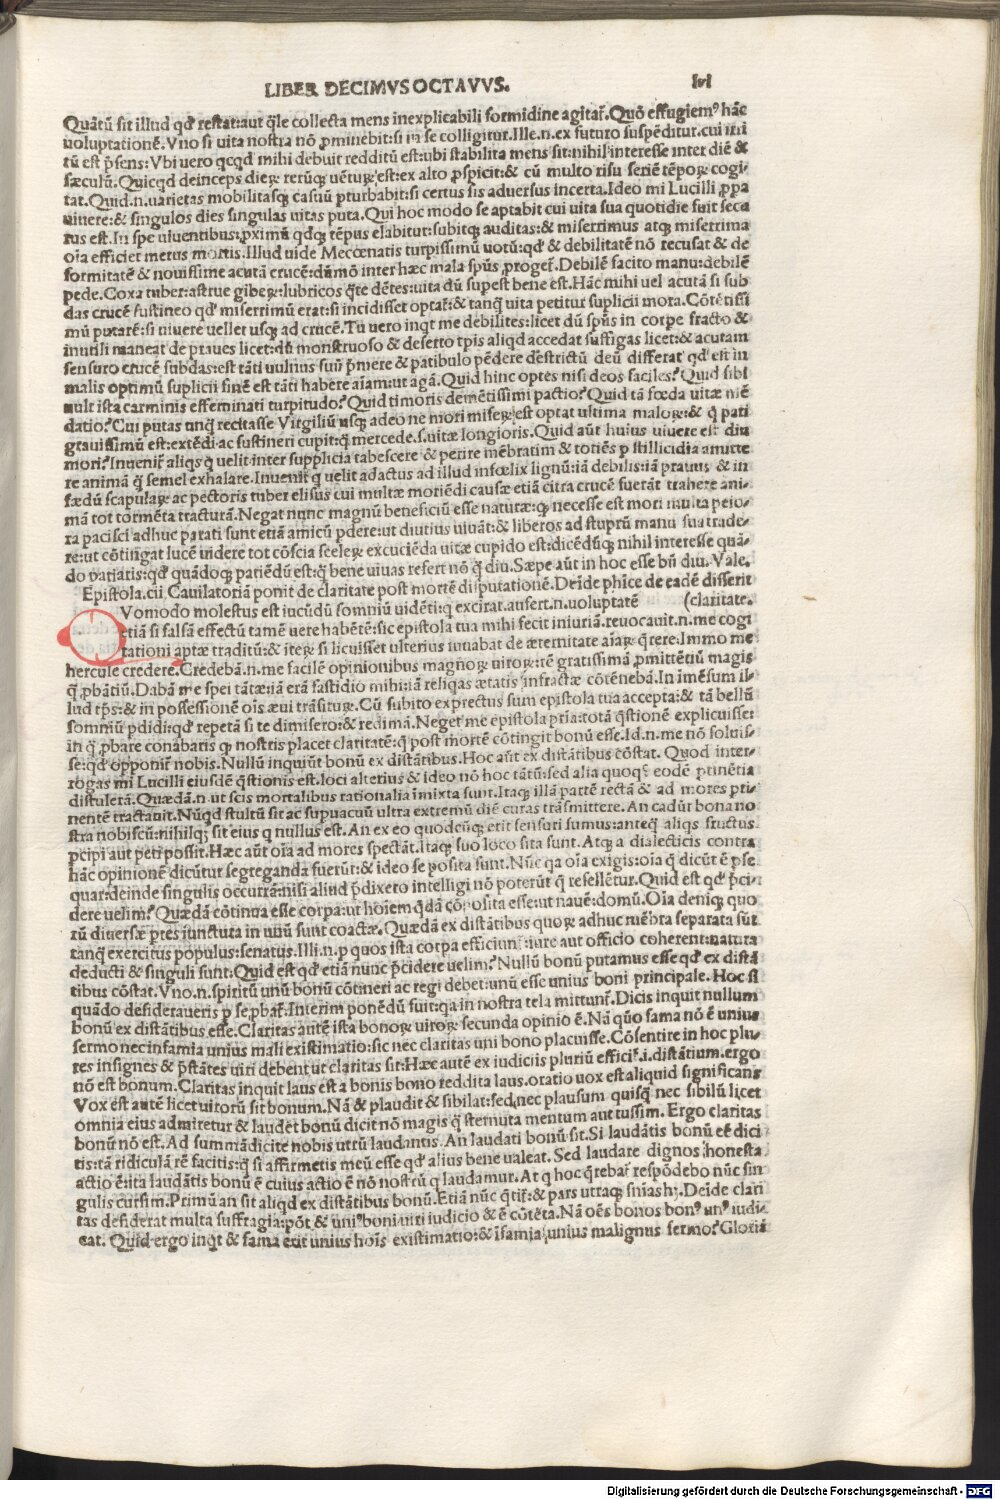 LIBER DECIMVS OCTAVVS. lvi
Quātū sit illud qđ restat: aut q̄le collecta mens inexplicabili formidine agitaꝛ̄. Quō effugiemꝰ hāc
uoluptationē. Vno si uita nostra nō ꝓminebit: si in se colligitur. Ille.n.ex futuro suspēditur. cui irri
tū est p̄sens: Vbi uero qcqd mihi debuit redditū est: ubi stabilita mens sit: nihil interesse inter diē &
sæculū. Quicqd deinceps dieꝝ retūꝗ uētuꝝ est: ex alto ꝓspicit: & cū multo risu seriē tēpoꝝ cogi-
tat. Quid.n.uarietas mobilitasꝗ casuū pturbabit: si certus sis aduersus incerta. Ideo mi Lucilli ꝓpa
uiuere: & singulos dies singulas uitas puta. Qui hoc modo se aptabit cui uita sua quotidie fuit seca
rus est. In spe uiuentibus: ꝓximū qdꝗ tēpus elabitur: subitꝗ auditas: & miserrimus atꝗ miserrima
oīa efficiet metus mortis. Illud uide Mecœnatis turpissimū uotū: qđ & debilitatē nō recusat & de
formitatē & nouissime acutā crucē: dūmō inter hæc mala spūs ꝓrogeꝛ̄. Debilē facito manu: debilē
pede. Coxa tuber: astrue gibeꝝ: lubricos q̄te dētes: uita dū supest bene est. Hāc mihi uel acutā si sub
das crucē sustineo qđ miserrimū erat: si incidisset optaꝛ̄: & tanq̄ uita petitur suplicii mora. Cōtētissi
mū putarē: si uiuere uellet usꝗ ad crucē. Tu uero inqt me debilites: licet dū spūs in corpe fracto &
inutili maneat de praues licet: dū monstruoso & deserto tpis aliqd accedat suffigas licet: & acutam
sensuro crucē subdas: est tāti uulnus suū p̄mere & patibulo pēdere destrictū deū differat qđ est in
malis optimū suplicii finē est tāti habere aīam: ut agā. Quid hinc optes nisi deos faciles? Quid sibi
uult ista carminis effeminati turpitudo? Quid timoris demētissimi pactio? Quid tā fœda uitæ mē
datio? Cui putas unq̄ recitasse Virgiliū usꝗ adeo ne mori miseꝝ est optat ultima maloꝝ: & q̄ pati
grauissimū est: extēdi ac sustineri cupit: q̄ mercede.s.uitæ longioris. Quid aūt huius uiuere est diu
mori? Inueniꝛ̄ aliqs q̄ uelit inter supplicia tabescere & perire mēbratim & totiēs p stillicidia amitte
re animā q̄ semel exhalare. Inueniꝛ̄ q̄ uelit adactus ad illud infœlix lignū: iā debilis: iā prauus & in
fœdū scapulaꝝ ac pectoris tuber elisus cui multæ moriēdi causæ etiā citra crucē fuerāt trahere ani-
mā tot tormēta tracturā. Negat nunc magnū beneficiū esse naturæ: q̄ necesse est mori multa peio-
ra pacisci adhuc parati sunt etiā amicū pdere: ut diutius uiuāt: & liberos ad stuprū manu sua trade-
re: ut cōtingat lucē uidere tot cōscia sceleꝝ excuciēda uitæ cupido est: dicēdūꝗ nihil interesse quā-
do patiaris: qđ quādoꝗ patiēdū est: q̄ bene uiuas refert nō q̄ diu. Sæpe aūt in hoc esse bn̄ diu. Vale.
Epistola.cii. Cauilatoriā ponit de claritate post mortē disputationē. Deīde phīce de eadē disserit
Vomodo molestus est iucūdū somniū uidēti: q excitat. aufert.n.uoluptatē (claritate.
etiā si falsā effectū tamē uere habētē: sic epistola tua mihi fecit iniuriā. reuocauit.n.me cogi
tationi aptæ traditū: & iteꝝ si licuisset ulterius iuuabat de æternitate aīaꝝ q̄rere. Immo me
hercule credere. Credebā.n.me facilē opinionibus magnoꝝ uiroꝝ: rē gratissimā ꝓmittētiū magis
q̄ ꝓbātiū. Dabā me spei tātæ: iā erā fastidio mihi: iā reliqas ætatis infractæ cōtēnebā. In īmēsum il-
lud tp̄s: & in possessionē oīs æui trāsiturꝰ. Cū subito exprectus sum epistola tua accepta: & tā bellū
somniū pdidi: qđ repetā si te dimisero: & redimā. Neget me epistola pria: totā q̄stionē explicuisse:
in q̄ ꝓbare conabaris q̄ nostris placet claritatē: q̄ post mortē cōtingit bonū esse. Id.n.me nō soluis-
se: qđ opponiꝛ̄ nobis. Nullū inquiūt bonū ex distātibus. Hoc aūt ex distātibus cōstat. Quod inter-
rogas mi Lucilli eiusdē q̄stionis est. loci alterius & ideo nō hoc tātū: sed alia quoꝗ eodē ptinētia
distulerā. Quædā.n.ut scis mortalibus rationalia īmixta sunt. Itaꝗ illā partē rectā & ad mores pti-
nentē tractauit. Nūqđ stultū sit ac supuacuū ultra extremū diē curas trāsmittere. An cadūt bona no
stra nobiscū: nihilꝗ sit eius q nullus est. An ex eo quodcūꝗ erit sensuri sumus: anteq̄ aliqs fructus
pcipi aut peti possit. Hæc aūt oīa ad mores spectāt. Itaꝗ suo loco sita sunt. Atꝗ a dialecticis contra
hāc opinionē dicūtur segreganda fuerūt: & ideo se posita sunt. Nūc qa oīa exigis: oīa q̄ dicūt ē pse
quar: deinde singulis occurrā: nisi aliud p̄dixero intelligi nō poterūt q̄ refellētur. Quid est qđ p̄ci-
dere uelim? Quædā cōtinua esse corpa: ut hoīem q̄dā cōposita esse: ut nauē: domū. Oīa deniꝗ quo
rū diuersæ ptes iunctura in unū sunt coactæ. Quædā ex distātibus quoꝝ adhuc mēbra separata sūt
tanq̄ exercitus populus: senatus. Illi.n.p quos ista corpa efficiunꝛ̄: iure aut officio coherent: natura
deducti & singuli sunt. Quid est qđ etiā nunc p̄cidere uelim? Nullū bonū putamus esse qđ ex distā
tibus cōstat. Vno.n.spiritū unū bonū cōtineri ac regi debet: unū esse unius boni principale. Hoc si
quādo desideraueris p se ꝓbaꝛ̄. Interim ponēdū fuit: qa in nostra tela mittunꝛ̄. Dicis inquit nullum
bonū ex distātibus esse. Claritas autē ista bonoꝝ uiroꝝ secunda opinio ē. Nā quō fama nō ē unius
sermo nec infamia unius mali existimatio: sic nec claritas uni bono placuisse. Cōsentire in hoc plu-
res insignes & p̄stātes uiri debent ut claritas sit: Hæc autē ex iudiciis pluriū efficiꝛ̄.i.distātium. ergo
nō est bonum. Claritas inquit laus est a bonis bono reddita laus. oratio uox est aliquid significans
Vox est autē licet uirorū sit bonum. Nā & plaudit & sibilat: sed nec plausum quisq̄ nec sibilū licet
omnia eius admiretur & laudet bonū dicit nō magis q̄ sternuta mentum aut tussim. Ergo claritas
bonū nō est. Ad summā dicite nobis utrū laudantis. An laudati bonū sit. Si laudātis bonū eē dici
tis: tā ridiculā rē facitis: q̄ si affirmetis meū esse qđ alius bene ualeat. Sed laudare dignos honesta
actio ē: ita laudātis bonū ē cuius actio ē nō nostrū q laudamur. At q̄ hoc q̄rebaꝛ̄ respōdebo nūc sin
gulis cursim. Primū an sit aliqd ex distātibus bonū. Etiā nūc q̄riꝛ̄: & pars utraꝗ snīas hꝫ. Deīde clari
tas desiderat multa suffragia: pōt & uniꝰ boni uiri iudicio & ē cōtēta. Nā oēs bonos bonꝰ unꝰ iudi-
cat. Quid ergo inqt & fama erit unius hoīs existimatio: & īfamia: unius malignus sermo? Gloriā
Digitalisierung gefördert durch die Deutsche Forschungsgemeinschaft - DFG